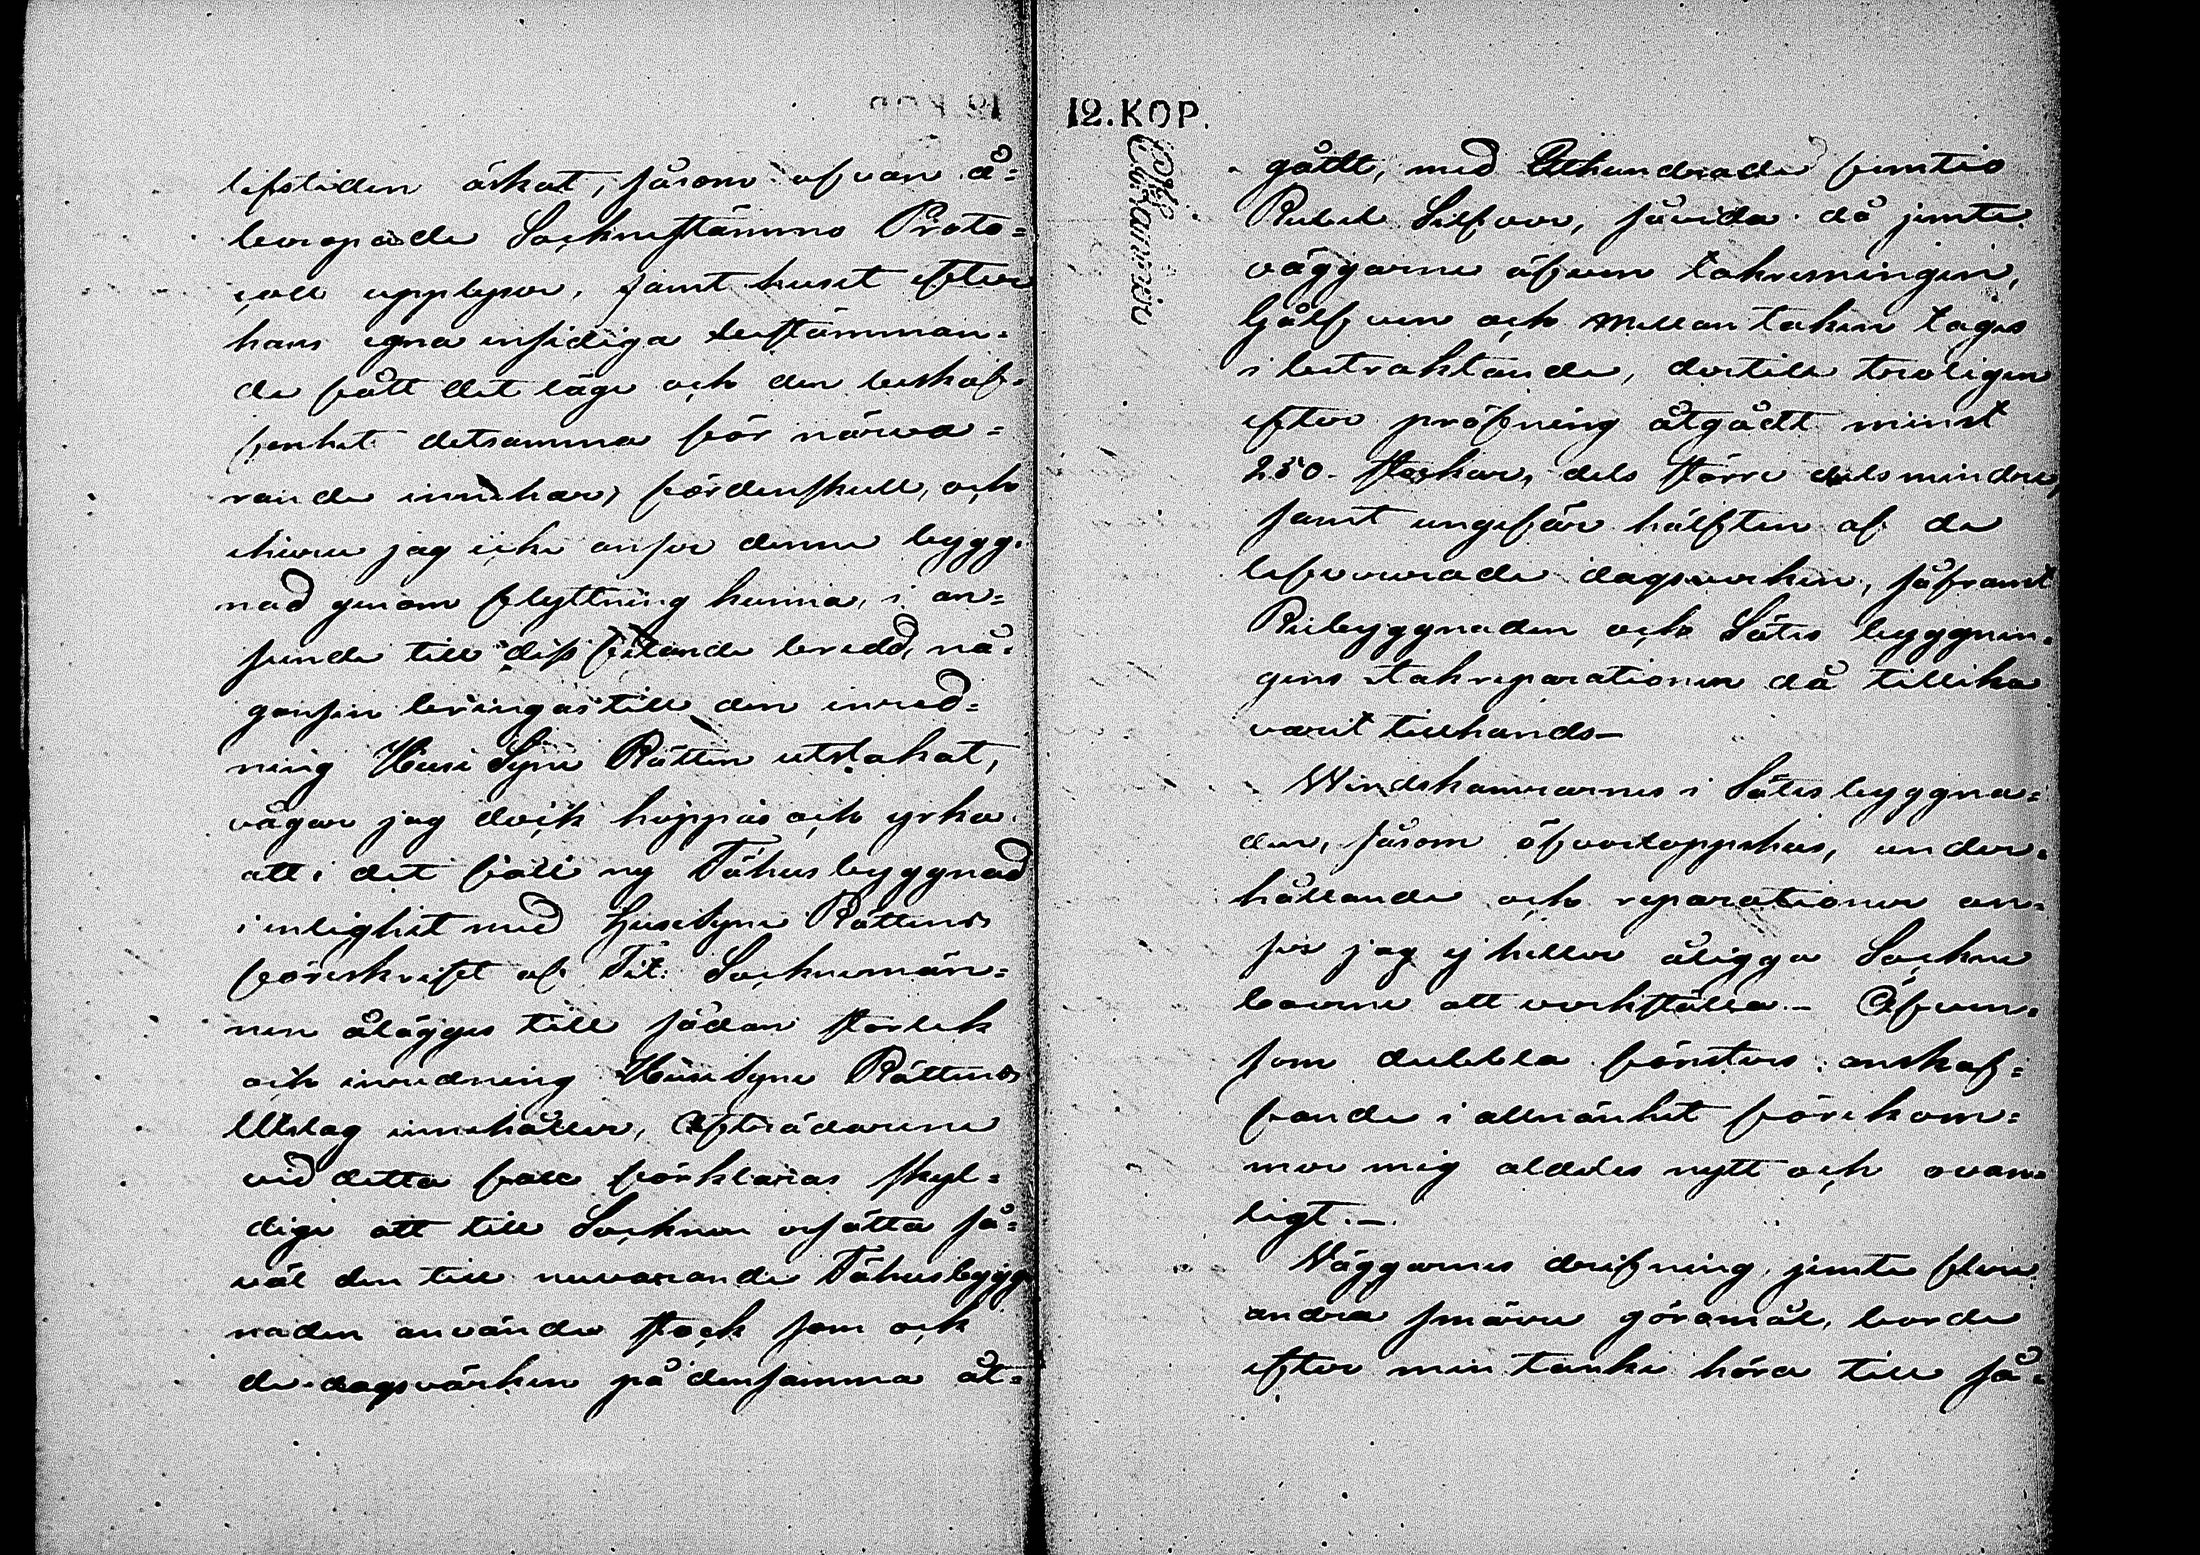 lifstiden äskat, såsom ofvan å-
beropade Socknestämmo Proto-
coll upplyser, samt huset efter
hans egna ensidiga bestämman-
de fått det läge och den beskaf-
fenhet detsamma för närva-
rande innehar, fördenskull, och
ehuru jag icke anser denne bygg-
nad genom flyttning kunna, i an-
seende till dess felande bredd, nå-
gonsin bringas till den inred-
ning Huse Syne Rätten utstakat,
vågar jag dock hoppas och yrka
att i det fall ny Fähus byggnad
i enlighet med HuseSyne Rättens
föreskrift af Tit: Socknemän-
nen ålägges till sådan storlek
och inredning HuseSyne Rättens
Utslag innehåller, Afträdarene
vid detta fall förklaras skyl-
dige att till Socknen ersätta så-
väl den till nuvarande Fähusbygg-
naden använde stock som ock
de dagsvärken på densamma åt-
12. KOP.
gådt, med Etthundrade femtio
Rubel Silfver, såvida då jemte
väggarne äfven takresningen,
Golfven och Mellantaken tages
i betraktande, dertill troligen
efter pröfning åtgådt minst
250. stockar, dels större dels mindre,
samt ungefär hälften af de
lefvererade dagsverken, såframt
Riebyggnaden och Sätes byggnin-
gens takreparationen då tillika
varit tillhands—
Windskamrarnes i Sätes byggna-
den, såsom öfverloppshus, under-
hållande och reparationer an-
ser jag ej heller åligga Sockne
boerne att verkställa.— Äfven-
som dubbla fönsters anskaf-
fande i allmänhet förekom-
mer mig alldeles nytt och ovan-
ligt.—
Väggarnes drifning, jemte flere
andra smärre göromål, borde
efter min tanke höra till så-